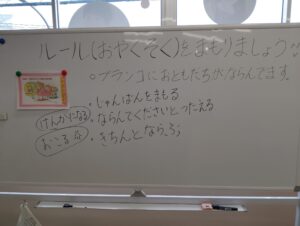 ルール(おやくそく)をまもりましょう
○ブランコにおともだちがならんでます。
・じゅんばんをまもる
けんかになる ・ならんでくださいとつたえる
おこる ・きちんとならぶ